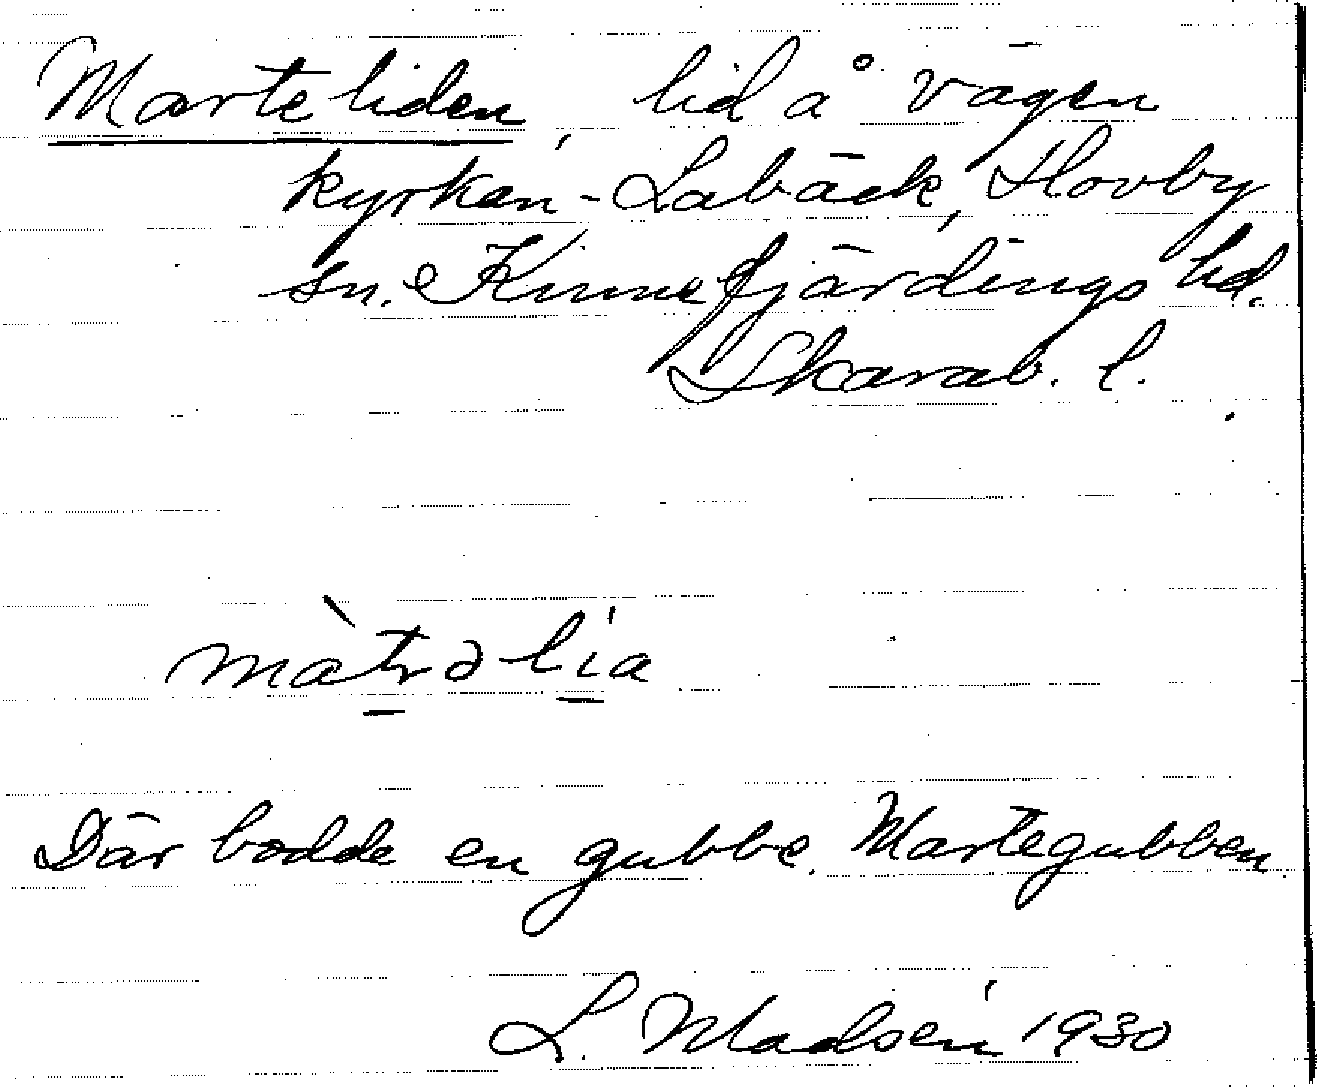 Marteliden, lid å vägen
kyrkan-Labäck, Hovby
sn. Kinnefjärdings hd.
Skarab. l.
màtrə lia
Där bodde en gubbe, Martegubben.
L. Madsén 1930